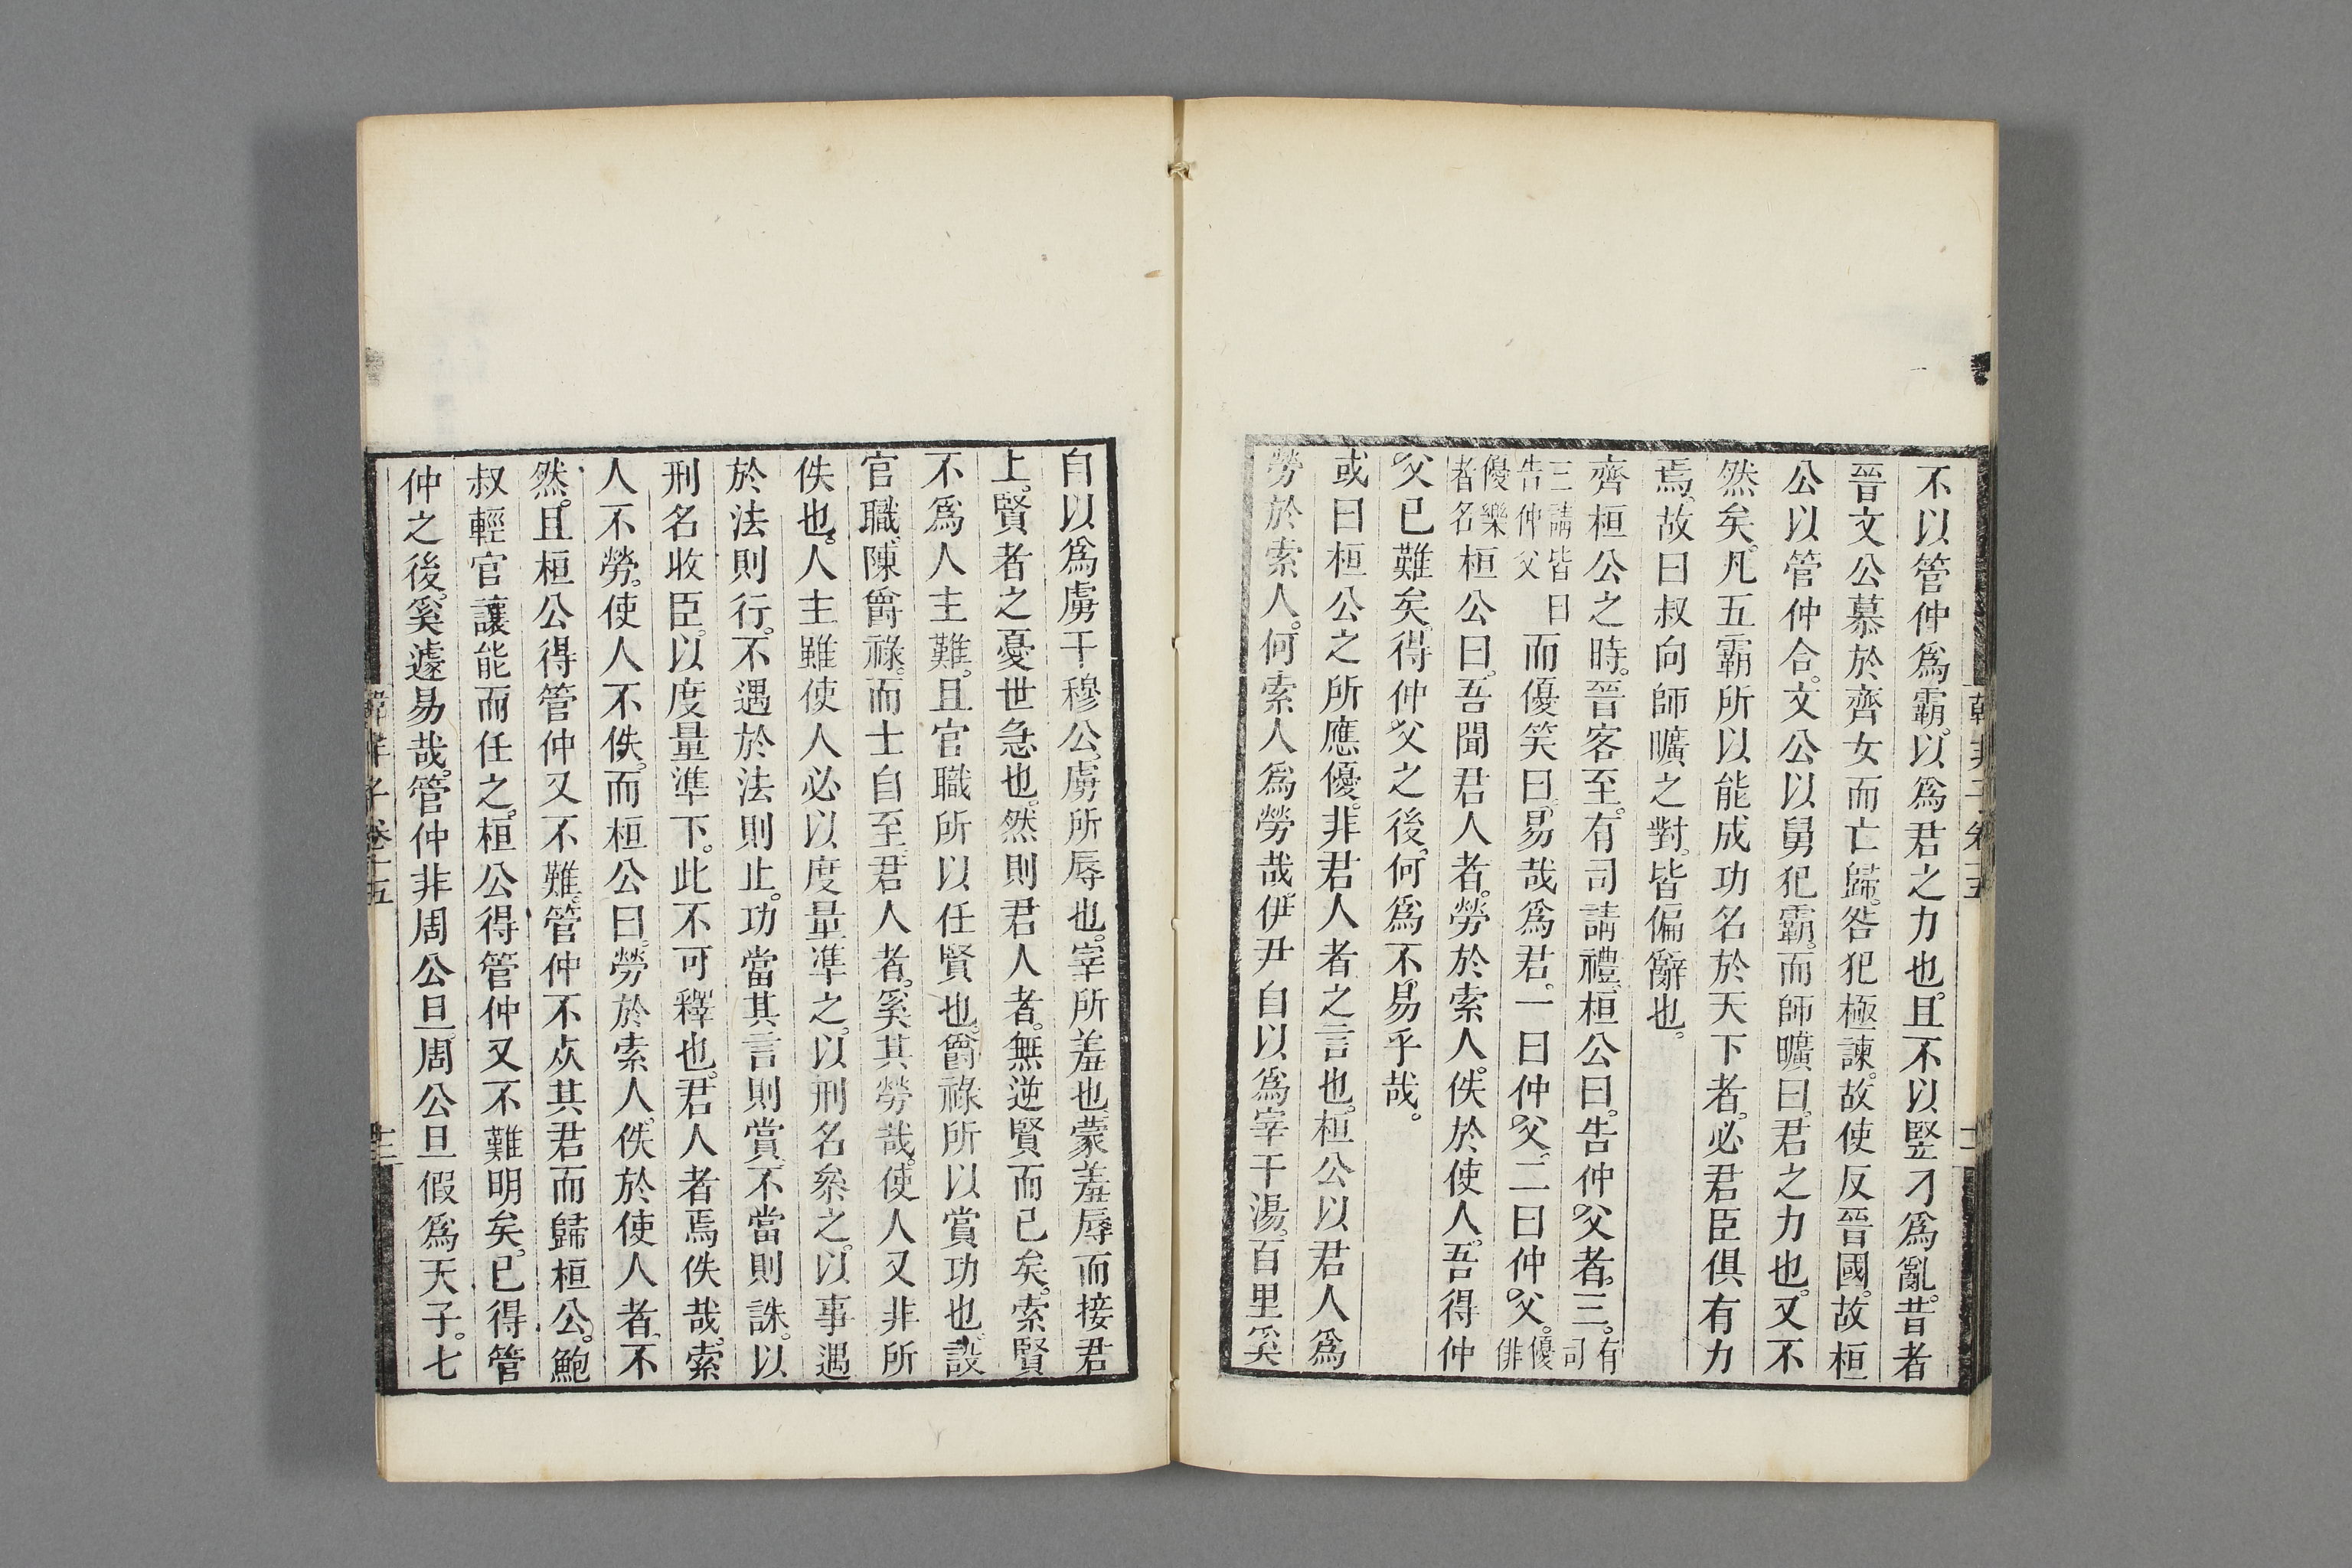 韓非子卷十五
不以管仲爲霸。以爲君之力也。且不以豎刁爲亂。昔者
晉文公慕於齊女而亡歸。咎犯極諫。故使反晉國。故桓
公以管仲合。文公以舅犯霸。而師曠曰。君之力也。又不
然矣。凡五霸所以能成功名於天下者。必君臣俱有力
焉。故曰叔向師曠之對。皆偏辭也。
齊桓公之時。晉客至。有司請禮。桓公曰。告仲父者。三。有司
三請皆曰告仲父而優笑曰。易哉爲君。一曰仲父。二曰仲父。優俳
優樂者名桓公曰。吾聞君人者。勞於索人。佚於使人。吾得仲
父已難矣。得仲父之後。何爲不易乎哉。
或曰桓公之所應優。非君人者之言也。桓公以君人爲
勞於索人。何索人爲勞哉。伊尹自以爲宰干湯。百里奚
自以爲虜干穆公。虜所辱也。宰所羞也。蒙羞辱而接君
上。賢者之憂世急也。然則君人者。無逆賢而已矣。索賢
不爲人主難。且官職所以任賢也。爵祿所以賞功也。設
官職。陳爵祿。而士自至。君人者。奚其勞哉。使人又非所
佚也。人主雖使人必以度量準之。以刑名參之。以事遇
於法則行。不遇於法則止。功當其言則賞。不當則誅。以
刑名收臣。以度量準下。此不可釋也。君人者焉佚哉。索
人不勞。使人不佚。而桓公曰。勞於索人。佚於使人者。不
然。且桓公得管仲又不難。管仲不死其君而歸桓公。鮑
叔輕官讓能而任之。桓公得管仲又不難明矣。已得管
仲之後。奚遽易哉。管仲非周公旦。周公旦假爲天子。七
韓非子卷十五